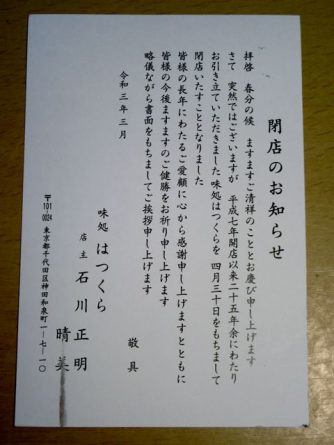 閉店のお知らせ
拝啓 春分の候 ますますご清祥のこととお慶び申し上げます
さて 突然ではございますが 平成七年開店以来二十五年余にわたり
お引き立ていただきました味処はつくらを 四月三十日をもちまして
閉店いたすこととなりました
皆様の長年にわたるご愛顧に心から感謝申し上げますとともに
皆様の今後ますますのご健勝をお祈り申し上げます
略儀ながら書面をもちましてご挨拶申し上げます
敬具
令和三年三月
味処 はつくら
店主 石川正明
晴美
〒101-0024 東京都千代田区神田和泉町一ー七ー一〇